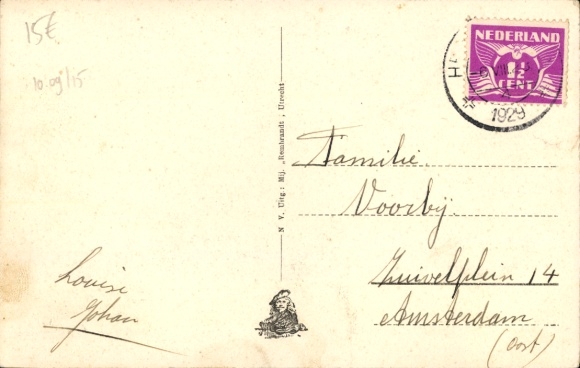 15€
10.09/15
NEDERLAND
1½
CENT
1929
N. V. Uitg: Mij. „Rembrandt; Utrecht
Familie.
Voorbij.
Zuivelplein 14
Amsterdam
(Oost)
Louise
Johan